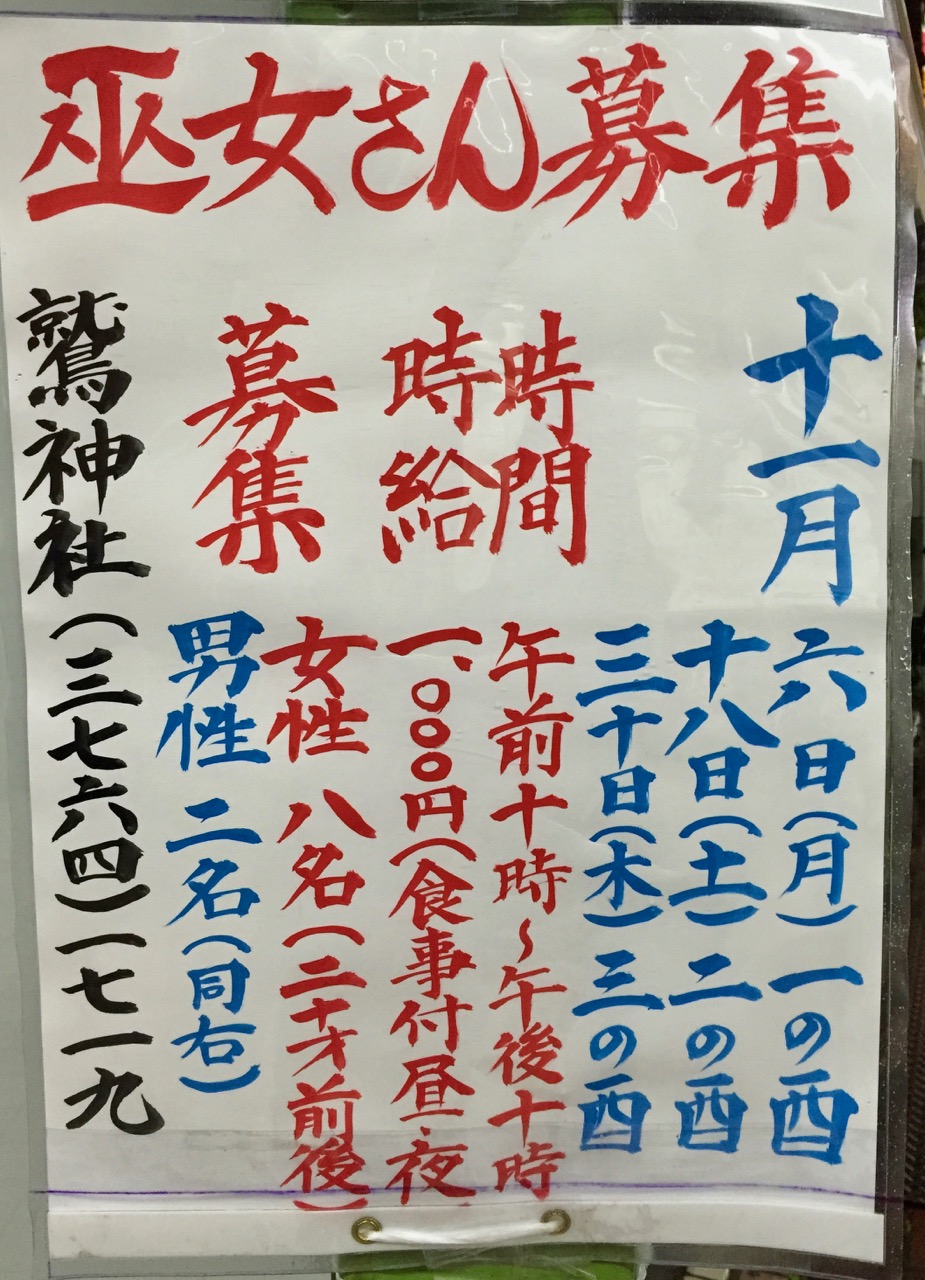 巫女さん募集
十一月 六日(月) 一の酉
十八日(土) 二の酉
三十日(木) 三の酉
時間 午前十時〜午後十時
時給 一、〇〇〇円(食事付昼、夜
募集 女性 八名(二十才前後)
男性 二名(同右)
鷲神社(三七六四)一七一九